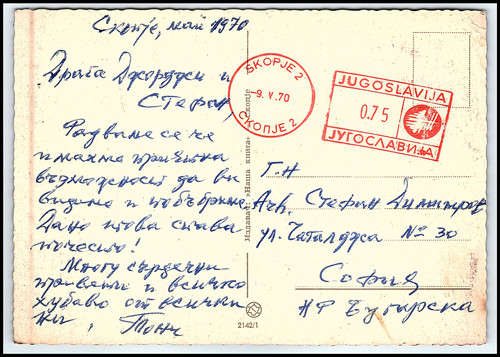 Скопје, май 1970
Драга Джорджи и
Стефан,
Радваме се че
имахме приятна
възможност да ви
видиме и побъбриме
Дано това става
по често!
Много сърдечни
привети и всичко
хубаво от всички
ни, Тони
SKOPJE 2
-9. V. 70
СКОПЈЕ 2
JUGOSLAVIJA
0.75
ЈУГОСЛАВИЈА
Г-Н
Арх. Стефан Димитров
ул. Чаталджа № 30
София
НР Бугарска
Издавач: «Наша книга» Скопје
2142/1